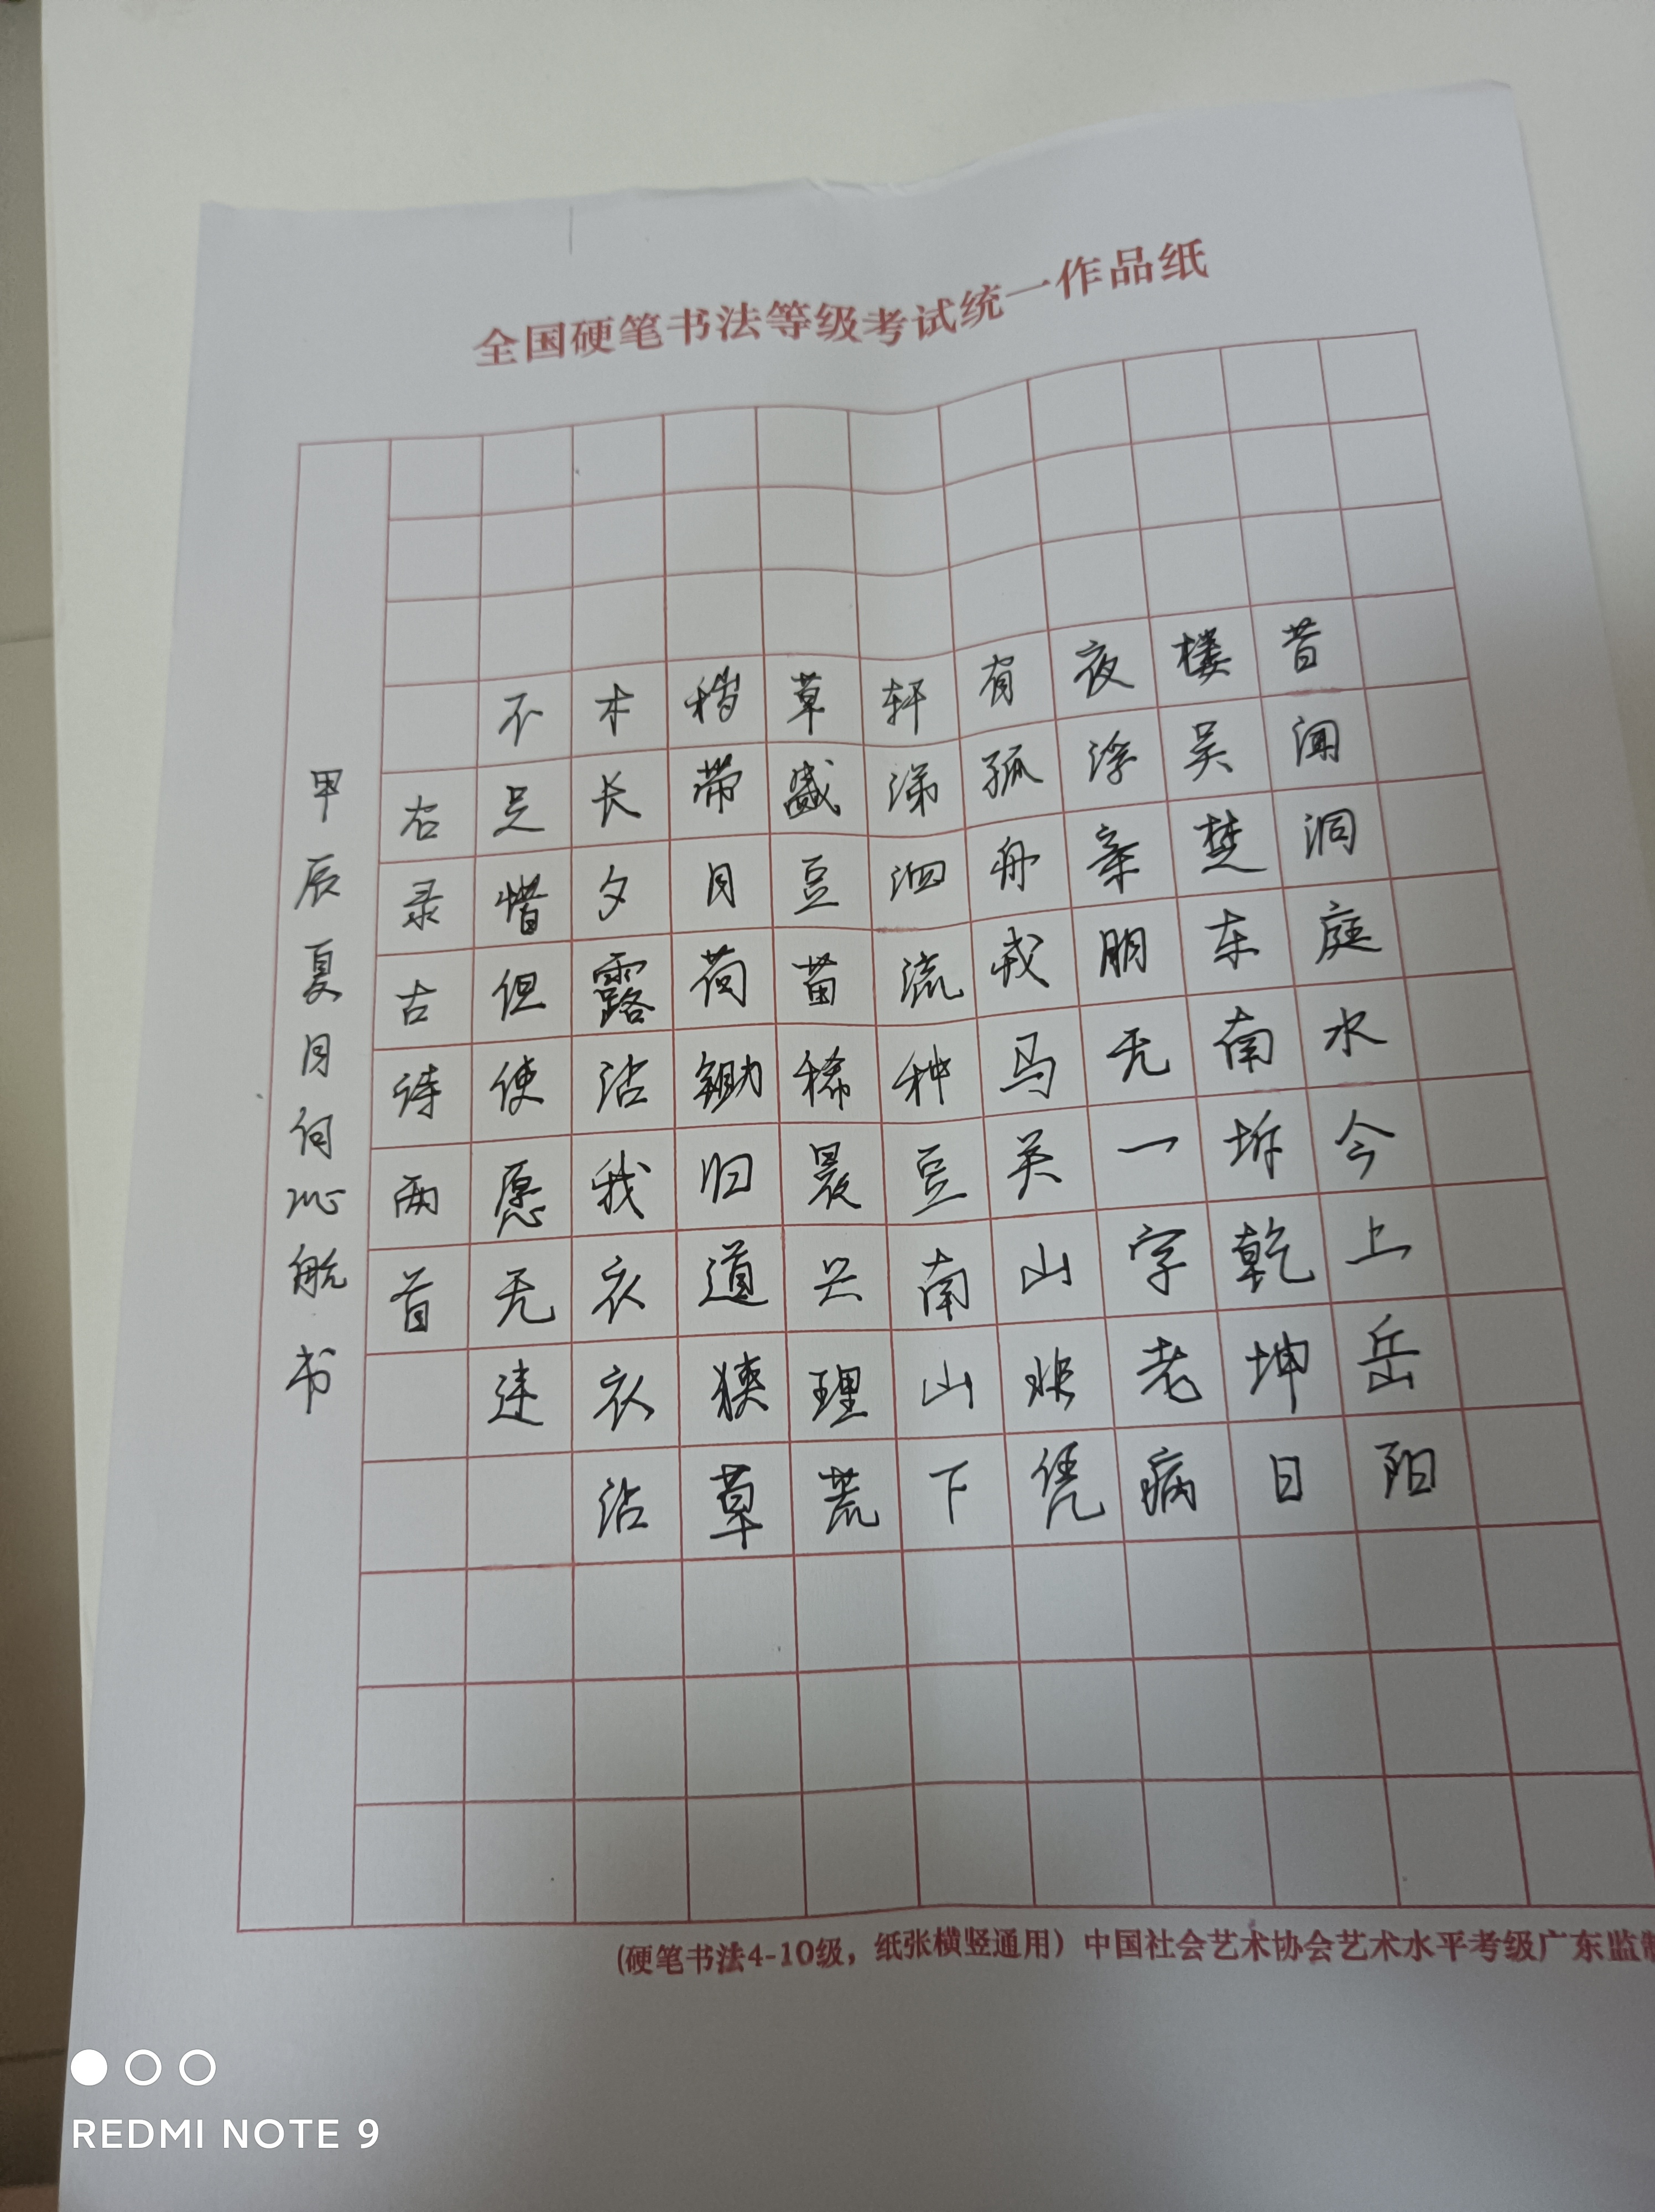 全国硬笔书法等级考试统一作品纸
昔闻洞庭水今上岳阳
楼吴楚东南坼乾坤日
夜浮亲朋无一字老病
有孤舟戎马关山北凭
轩涕泗流种豆南山下
草盛豆苗稀晨兴理荒
秽带月荷锄归道狭草
木长夕露沾我衣衣沾
不足惜但使愿无违
右录古诗两首
甲辰夏月何沁航书
(硬笔书法4-10级，纸张横竖通用) 中国社会艺术协会艺术水平考级广东监制
REDMI NOTE 9